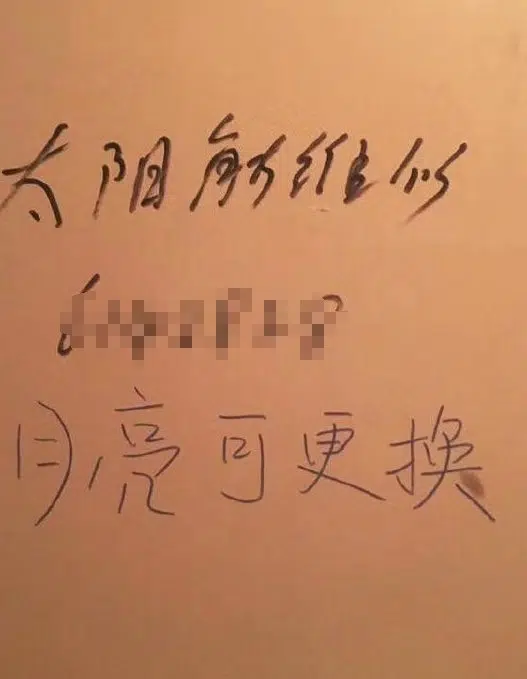 太阳能维修
月亮可更换